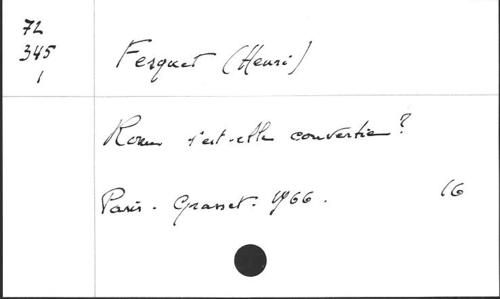 72
345
1
Fesquet (Henri)
Rome s'est-elle convertie ?
Paris - Grasset - 1966.
16